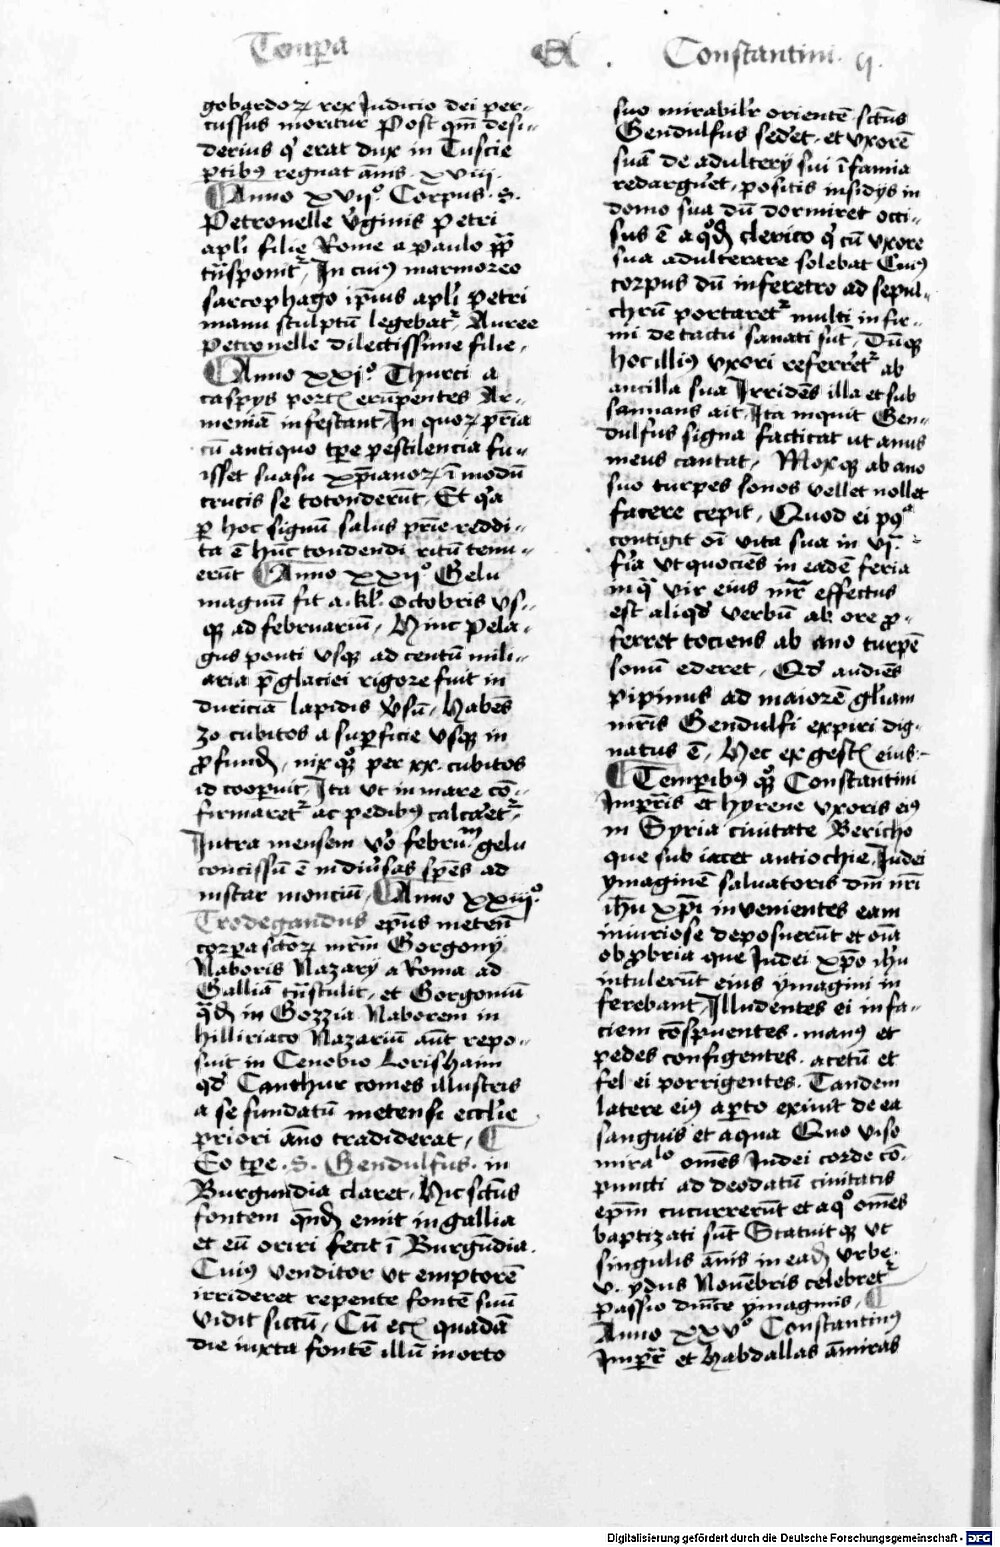 Tempa
Constantini. q.
gobardoꝝ rex Iudicio dei per-
cussus moritur Post quē desi-
derius qͥ erat dux in Tuscie
ꝑtibꝰ regnat ānis. xviij.
Anno xvijͦ. Corpus. S.
Petronelle v̓ginis Petri
apl̓i filie Rome a paulo pp̄
tn̄sponitᷣ. In cuiꝰ marmoreo
sarcophago ip̄ius apl̓i Petri
manu sculptū legebatᷣ, Auree
Petronelle dilectissime filie,
Anno xxjͦ. Thurci a
caspijs port̄ erūpentes Ar-
meniā infestant, In quoꝝ pr̄ia
cū antiquo tp̄e pestilencia fu-
isset suasu xp̄ianoꝝ ī modū
crucis se totonderūt, Et qͥa
ꝑ hoc signū salus pr̄ie reddi-
ta ē hūc tondendi ritū tenu-
erūt Anno xxijͦ Gelu
magnū fit a. kl̓. Octobris vs-
qꝫ ad februariū, Hinc pela-
gus ponti vsqꝫ ad centū mili-
aria p̄ glaciei rigore fuit in
duriciā lapidis v̓sū, Habēs
30 cubitos a suꝑficie vsqꝫ in
ꝓfundū, nix qꝫ per xx. cubitos
id cooꝑuit, Ita vt in mare cō-
firmaretᷣ ac pedibꝰ calcaretᷣ,
Intra mensem v̓o februm̄ gelu
concissū ē in diu̓sas spēs ad
instar monciū, Anno xxiijͦ.
Trodegandus ep̄us meten̄
corꝑa sctōꝝ mr̄m Gorgonij
Naboris Nazarij a Roma ad
Galliā tn̄stulit, et Gorgoniū
qͥdē in Gozzia Naborem in
hilliriaco Nazariū aūt repo-
suit in Cenobio Lorishaim
qd̓ Canthur comes illustris
a se fundatū metensi eccl̓ie
priori āno tradiderat,
Eo tp̄e. S. Gendulfus. in
Burgundia claret, Hic sctūs
fontem qn̄dā emit in gallia
et eū oriri fecit ī Burgūdia.
Cuiꝰ venditor vt emptorē
irrideret repente fontē suū
vidit siccū, Cū ec̄ quadā
die iuxta fontē illū in orto
suo mirabilr̓ orientē. sctūs
Gendulfus sed̓et. et vxorē
suā de adulterij sui īfamia
redargu̓et, positis insidijs in
domo sua dū dormiret occi-
sus ē a qͦdā clerico qͥ cū vxore
sua adulterare solebat Cuiꝰ
corpus dū in feretro ad sepul-
chrū portaretᷣ multi infir-
mi de tactu sanati sūt, Dūqꝫ
hoc illiꝰ vxori referretᷣ ab
ancilla sua Irridēs illa et sub
sannans ait, Ita inquit Gen-
dulfus signa facticat ut anus
meus cantat, Moxqꝫ ab ano
suo turpes sonos vellet nollet
facere cepit, Quod ei pꝰ
contigit oī vita sua in vj.
fr̓ia vt quociēs in eadē feria
in qͣ vir eius mr̄ effectus
est aliqd̓ verbū ab ore ꝓ-
ferret tociens ab ano turpē
sonū ederet, Qd̓ audiēs
pipinus ad maiorē gl̓iam
mr̄is Gendulfi expiri dig-
natus ē, Hec ex gest̄ eius.
Temꝑibꝰ qꝫ Constantini
Imꝑris et hyrene vxoris eiꝰ
in Syria ciuitate Bericho
que sub iacet antiochie, Iudei
ymaginē saluatoris dn̄i nr̄i
ih̄u xp̄i inuenientes eam
iniuriose deposuerūt et oīa
obꝓbria que Iudei xp̄o ih̄u
intulerūt eius ymagini in
ferebant, Illudentes ei in fa-
ciem cōspuentes. manꝰ et
pedes configentes. acetū et
fel ei porrigentes. Tandem
latere eiꝰ aꝑto exiuit de ea
sanguis et aqua Quo viso
miralo omēs Iudei corde cō-
puncti ad deodatū ciuitatis
ep̄m cucurrerūt et a qͦ omēs
baptizati sūt Statuitqꝫ vt
singulis ānis in eadē vrbe.
v. ydus Nouēbris celebretᷣ
passio dn̄ice ymaginis,
Anno xxvͦ Constantinꝰ
Imꝑr̄ et Habdallas āmiras
Digitalisierung gefördert durch die Deutsche Forschungsgemeinschaft - DFG